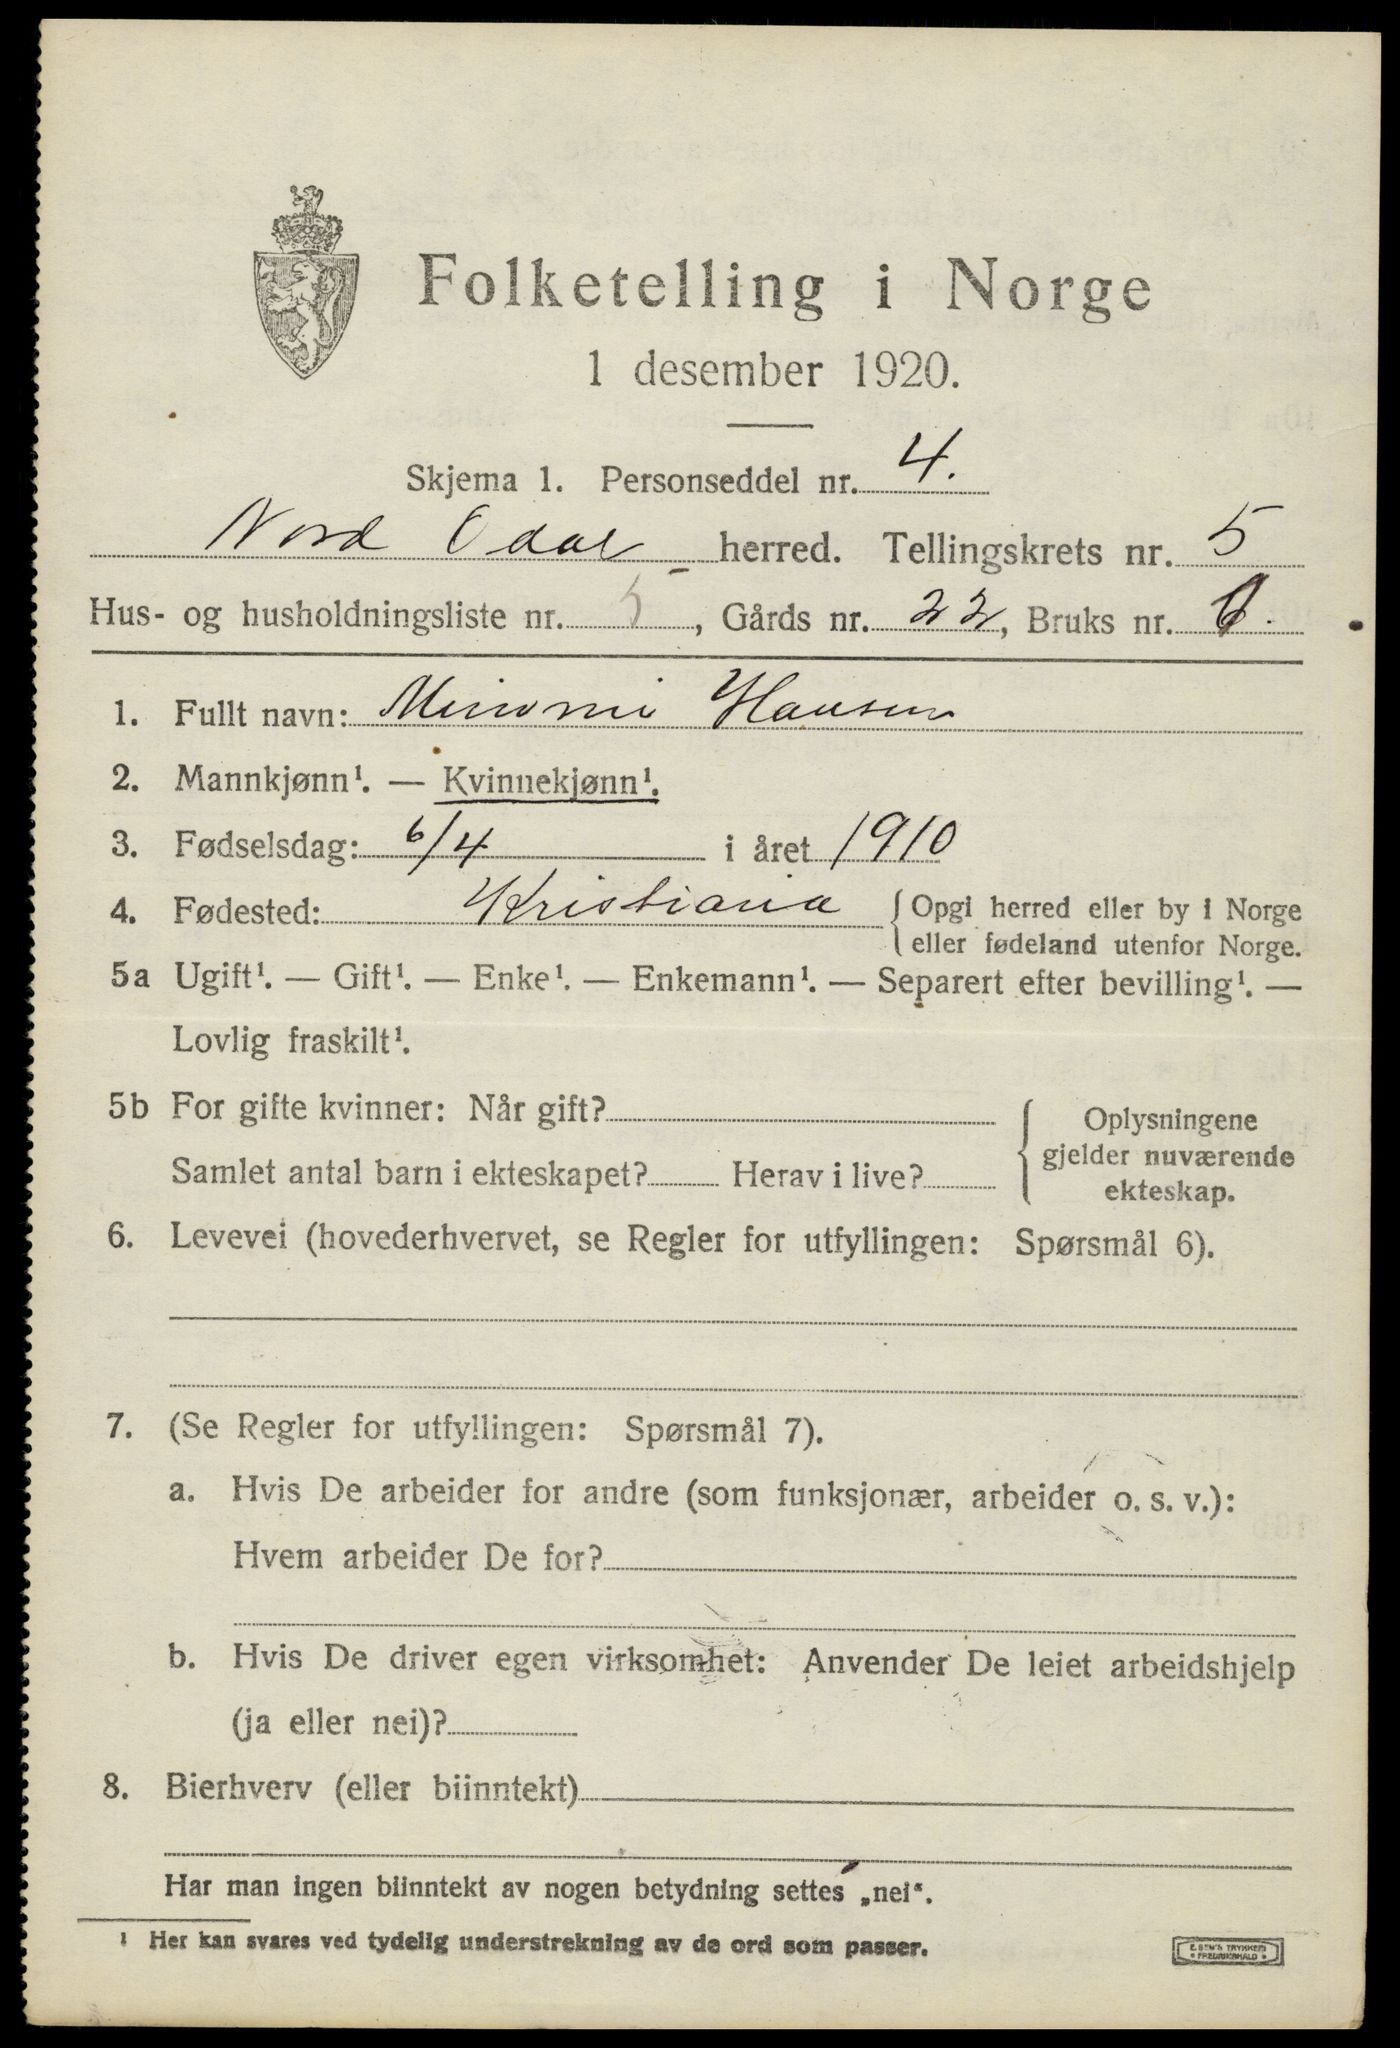 Folketelling i Norge
1 desember 1920.
Skjema 1. Personseddel nr. 4.
Nord Odal herred. Tellingskrets nr. 5
Hus- og husholdningsliste nr. 5, Gårds nr. 22, Bruks nr.
1. Fullt navn: Hansen
2. Mannkjønn¹. — Kvinnekjønn¹.
3. Fødselsdag: 6/4 i året 1910
4. Fødested: Kristiania { Opgi herred eller by i Norge
eller fødeland utenfor Norge.
5a Ugift¹. — Gift¹. — Enke¹. — Enkemann¹. — Separert efter bevilling¹. —
Lovlig fraskilt¹.
5b For gifte kvinner: Når gift?
Samlet antal barn i ekteskapet? Herav i live?
{ Oplysningene
gjelder nuværende
ekteskap.
6. Levevei (hovederhvervet, se Regler for utfyllingen: Spørsmål 6).
7. (Se Regler for utfyllingen: Spørsmål 7).
a. Hvis De arbeider for andre (som funksjonær, arbeider o. s. v.):
Hvem arbeider De for?
b. Hvis De driver egen virksomhet: Anvender De leiet arbeidshjelp
(ja eller nei)?
8. Bierhverv (eller biinntekt)
Har man ingen biinntekt av nogen betydning settes „nei“.
¹ Her kan svares ved tydelig understrekning av de ord som passer.
E. SEM'S TRYKKERI
• FREDRIKSHALD •